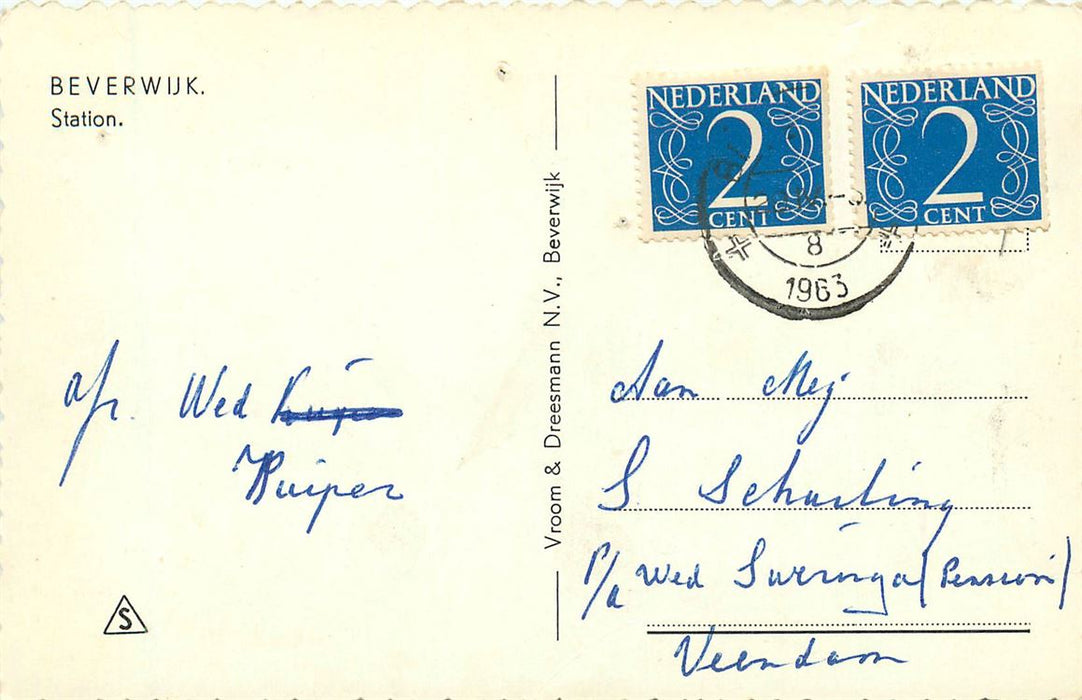 BEVERWIJK.
Station.
afz. Wed
Kuiper
S
Vroom & Dreesmann N.V., Beverwijk
NEDERLAND
2
CENT
NEDERLAND
2
CENT
8
1963
Aan Mej.
S Schurling
P/a Wed Sweringa (Pension)
Veendam